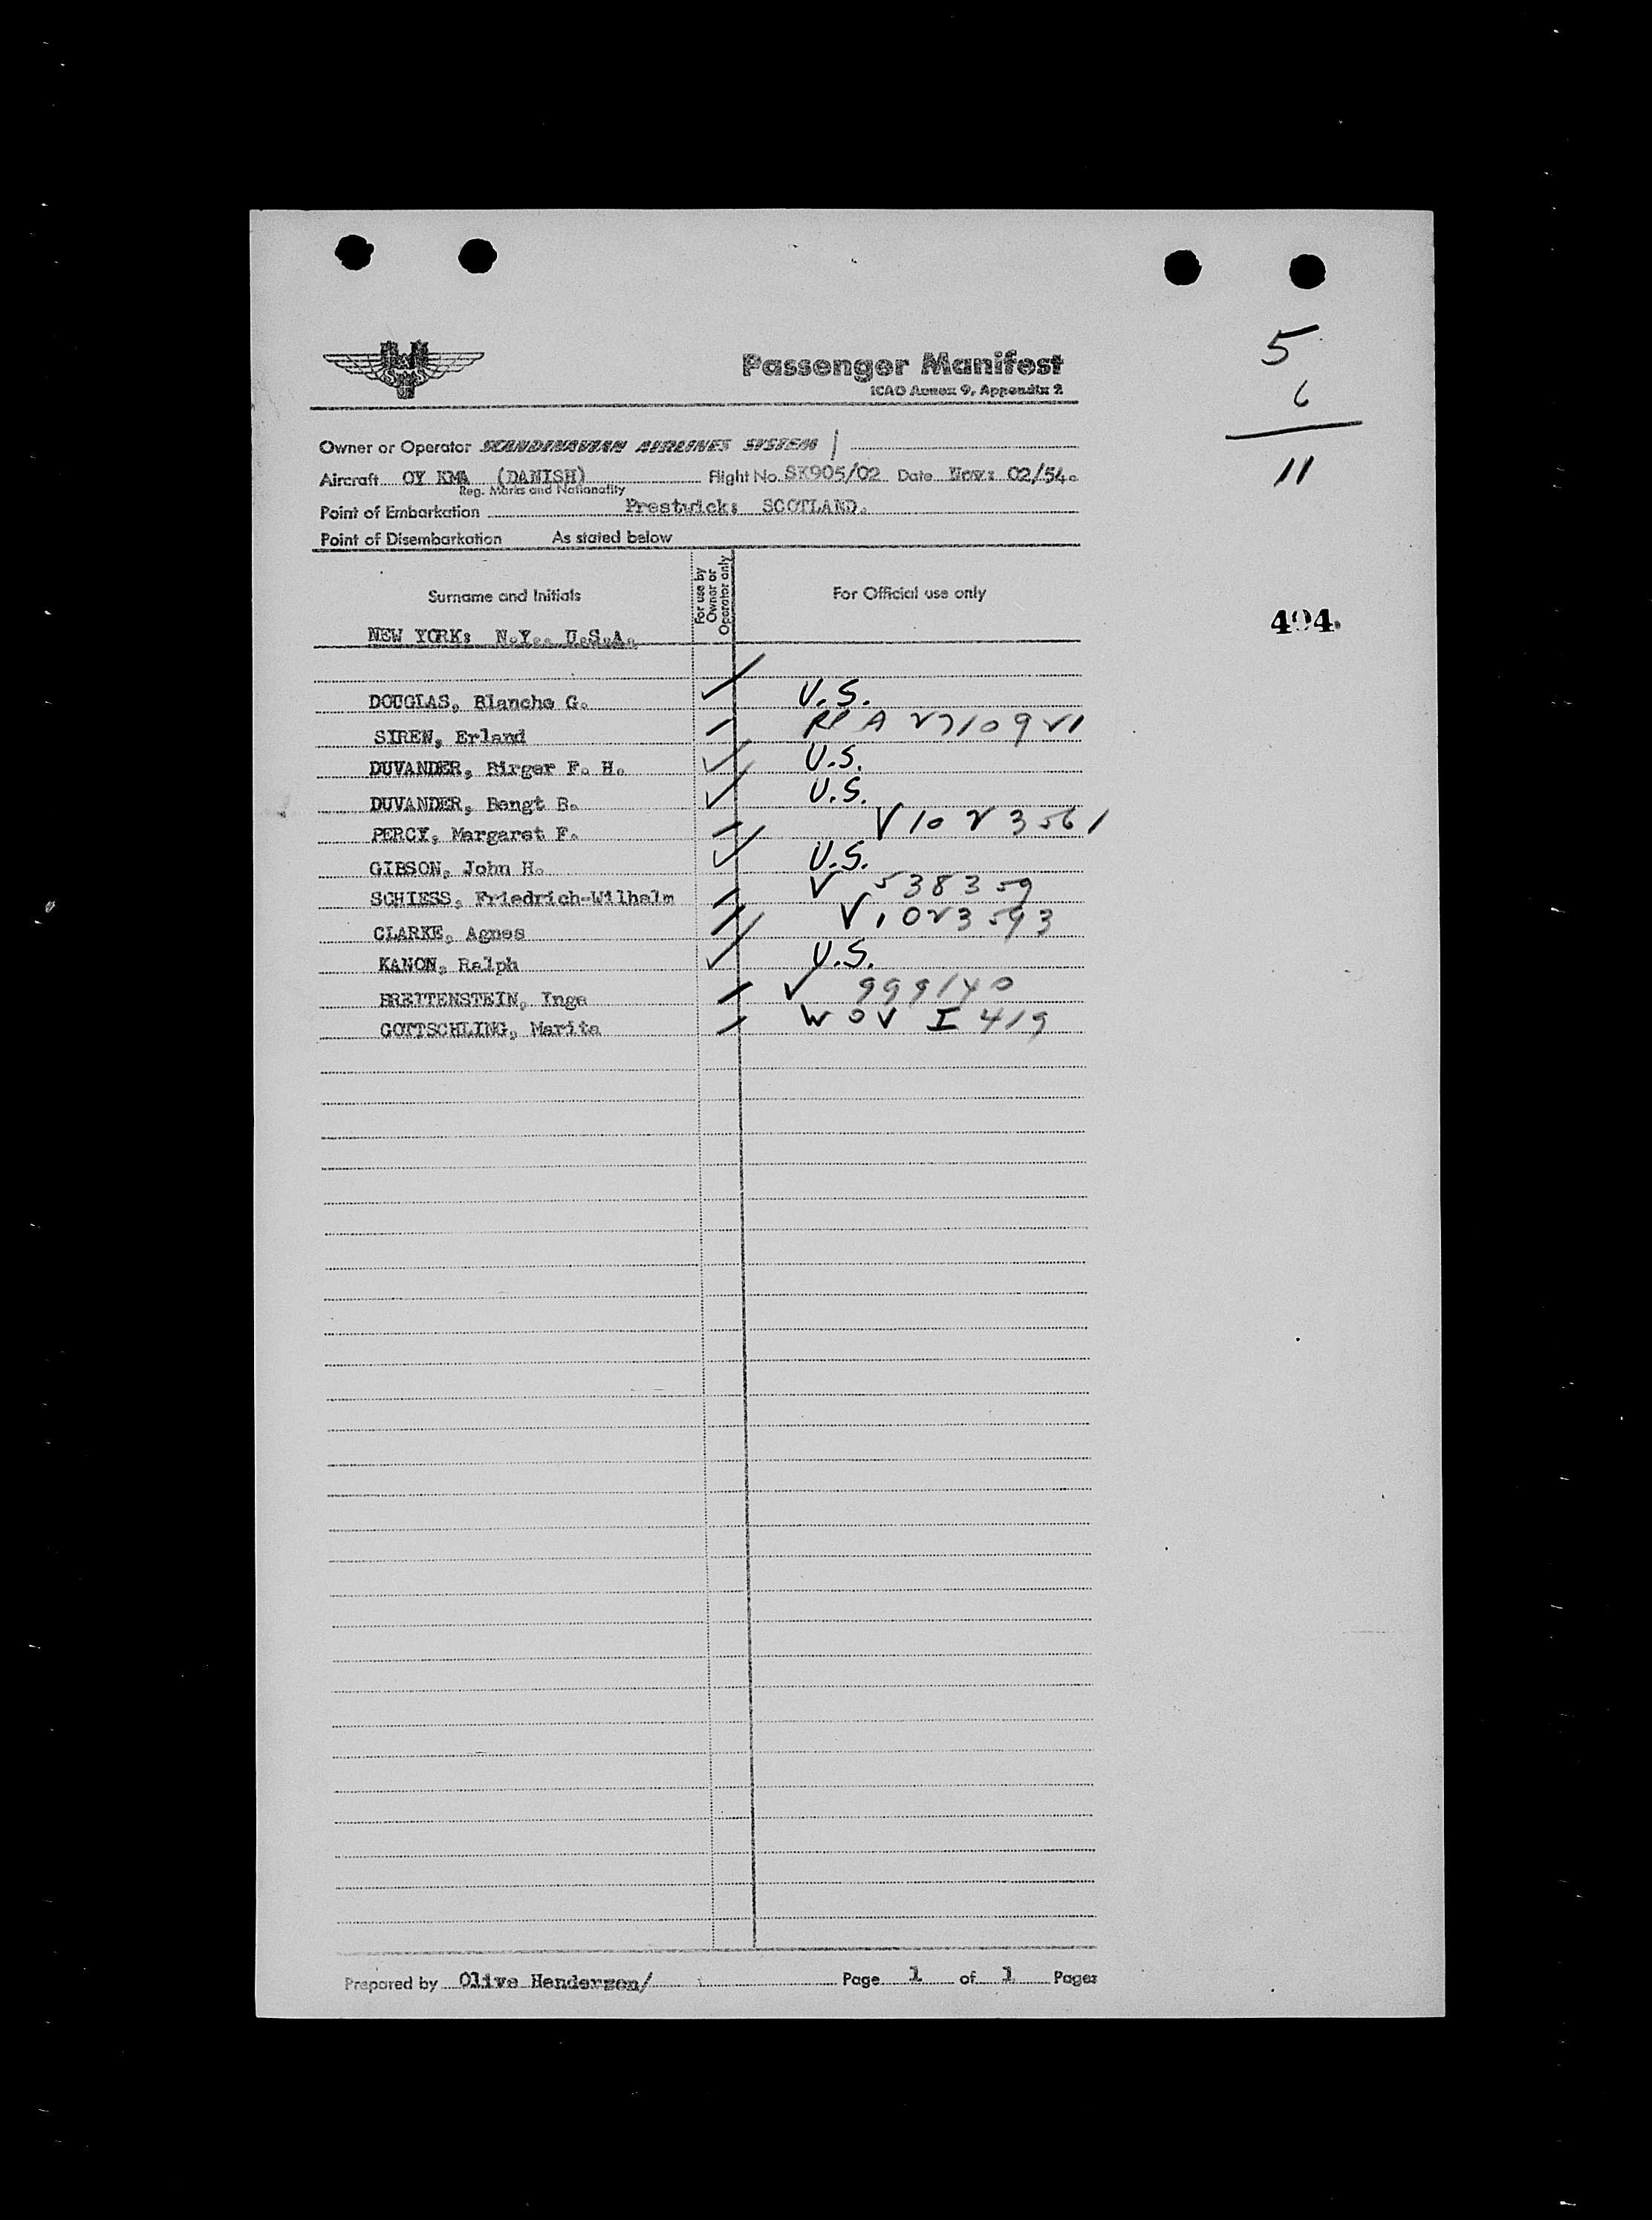 5
6
11
SAS
Passenger Manifest
ICAO Annex 9, Appendix 2
Owner or Operator SCANDINAVIAN AIRLINES SYSTEM /
Aircraft OY KMA (DANISH) Flight No. SK905/02 Date Nov: 02/54.
Reg. Marks and Nationality
Point of Embarkation Prestwick: SCOTLAND.
Point of Disembarkation As stated below
Surname and Initials For use by Owner or Operator only For Official use only
494.
NEW YORK: N.Y.. U.S.A.
DOUGLAS, Blanche G. ✓ U.S.
SIREN, Erland / RP A 2710921
DUVANDER, Birger F. H. ✓ U.S.
DUVANDER, Bengt B. ✓ U.S.
PERCY, Margaret F. / V 1023561
GIBSON, John H. ✓ U.S.
SCHIESS, Friedrich-Wilhelm / V 538359
CLARKE, Agnes / V 1023593
KANON, Ralph ✓ U.S.
BREITENSTEIN, Inge / V 999140
GOTTSCHLING, Marita / W O V I 419
Prepared by Olive Henderson/ Page 1 of 1 Pages